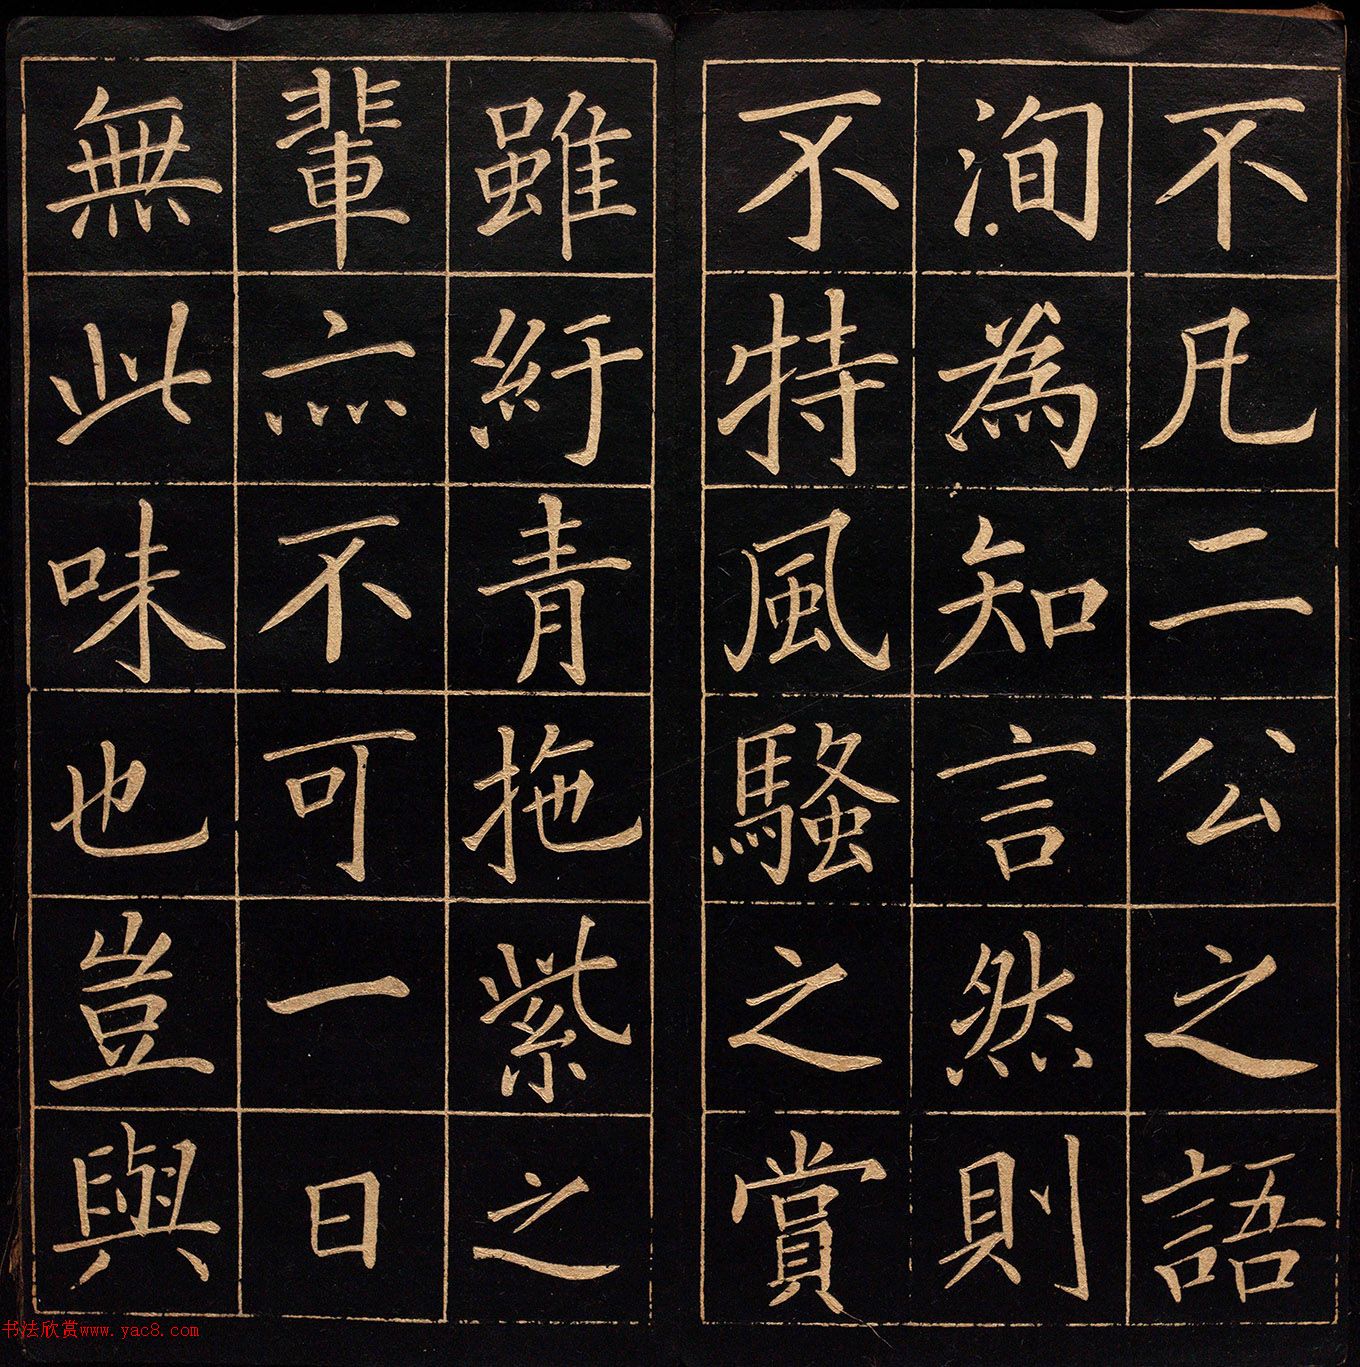 不凡二公之語
洵為知言然則
不特風騷之賞
雖紆青拖紫之
輩亦不可一日
無此味也豈與
书法欣赏www.yac8.com